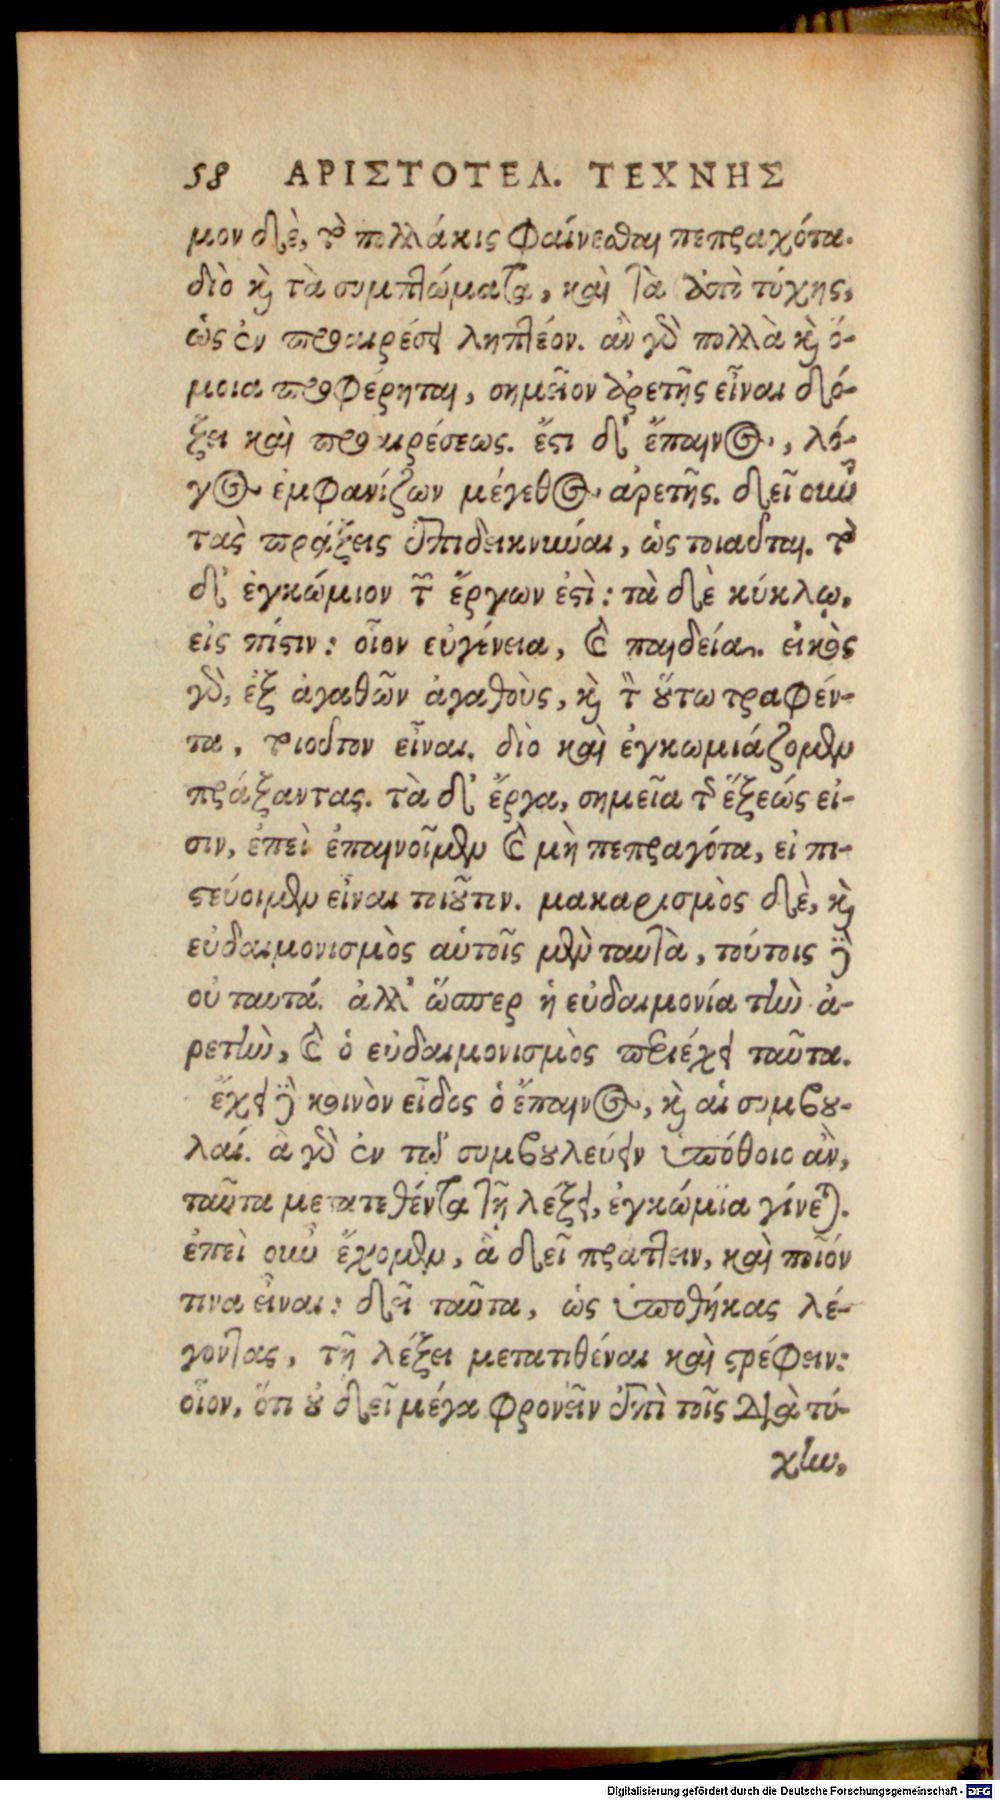 58 ΑΡΙΣΤΟΤΕΛ. ΤΕΧΝΗΣ
μον δὲ, τὸ πολλάκις φαίνεσθαι πεπραχότα.
διὸ καὶ τὰ συμπτώματα, καὶ τὰ ἀπὸ τύχης,
ὡς ἐν προαιρέσει ληπτέον. ἂν γὰρ πολλὰ καὶ ὅ-
μοια προφέρηται, σημεῖον ἀρετῆς εἶναι δό-
ξει καὶ προαιρέσεως. ἔστι δ' ἔπαινος, λό-
γος ἐμφανίζων μέγεθος ἀρετῆς. δεῖ οὖν
τὰς πράξεις ἐπιδεικνύναι, ὡς τοιαῦται. τὸ
δ' ἐγκώμιον τῶν ἔργων ἐστί: τὰ δὲ κύκλῳ,
εἰς πίστιν: οἷον εὐγένεια, καὶ παιδεία. εἰκὸς
γὰρ, ἐξ ἀγαθῶν ἀγαθοὺς, καὶ τὸν οὕτω τραφέν-
τα, τοιοῦτον εἶναι. διὸ καὶ ἐγκωμιάζομεν
πράξαντας. τὰ δ' ἔργα, σημεῖα τῆς ἕξεώς εἰ-
σιν, ἐπεὶ ἐπαινοῖμεν καὶ μὴ πεπραγότα, εἰ πι-
στεύοιμεν εἶναι τοιοῦτον. μακαρισμὸς δὲ, καὶ
εὐδαιμονισμὸς αὑτοῖς μὲν ταυτὰ, τούτοις δὲ
οὐ ταυτά. ἀλλ' ὥσπερ ἡ εὐδαιμονία τὴν ἀ-
ρετὴν, καὶ ὁ εὐδαιμονισμὸς περιέχει ταῦτα.
ἔχει δὲ κοινὸν εἶδος ὁ ἔπαινος, καὶ αἱ συμβου-
λαί. ἃ γὰρ ἐν τῷ συμβουλεύειν ὑπόθοιο ἂν,
ταῦτα μετατεθέντα τῇ λέξει, ἐγκώμια γίνεται.
ἐπεὶ οὖν ἔχομεν, ἃ δεῖ πράττειν, καὶ ποῖόν
τινα εἶναι: δεῖ ταῦτα, ὡς ὑποθήκας λέ-
γοντας, τῇ λέξει μετατιθέναι καὶ στρέφειν:
οἷον, ὅτι οὐ δεῖ μέγα φρονεῖν ἐπὶ τοῖς διὰ τύ-
χην,
Digitalisierung gefördert durch die Deutsche Forschungsgemeinschaft - DFG